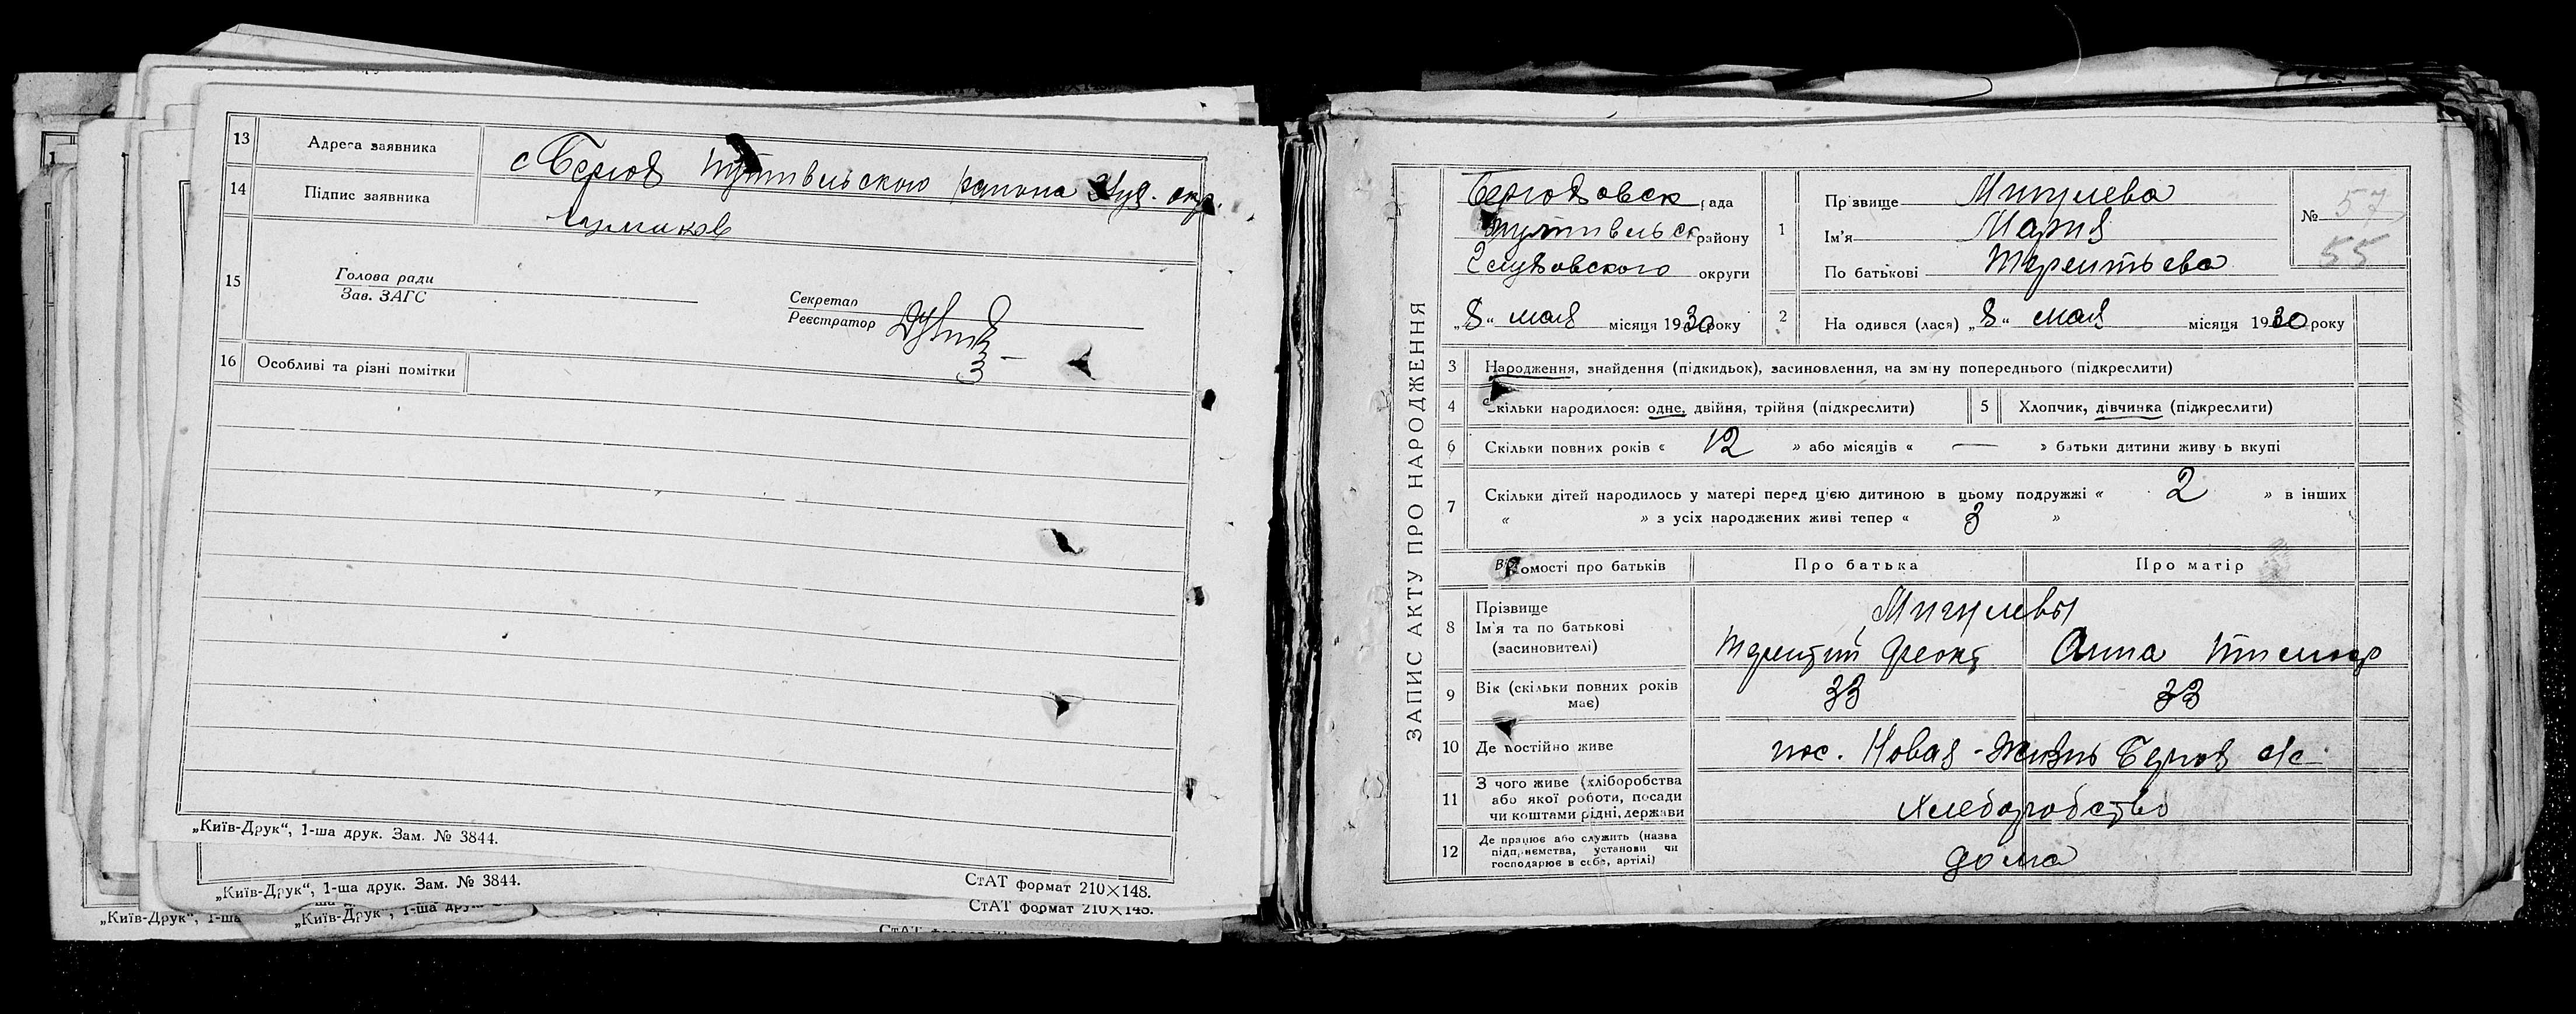 13 Адреса заявника
с Берюх Путивльского района Глух. окр.
14 Підпис заявника
15
Голова ради
Зав. ЗАГС
Секретар
Реєстратор
16 Особливі та різні помітки
„Київ-Друк“, 1-ша друк. Зам. № 3844.
„Київ-Друк“, 1-ша друк. Зам. № 3844.
СтАТ формат 210×148.
„Київ-Друк“, 1-ша
„Київ-Друк“, 1-ша друк.
СтАТ формат 210×148.
ЗАПИС АКТУ ПРО НАРОДЖЕННЯ
рада
Путивльск району
Глуховского округи
„8“ мая місяця 1930 року
1 Прізвище Мигулева
Ім'я Мария
По батькові Терентьева
№ 57
55
2 Народився (лася) „8“ мая місяця 1930 року
3 Народження, знайдення (підкидьок), засиновлення, на зміну попереднього (підкреслити)
4 Скільки народилося: одне, двійня, трійня (підкреслити)
5 Хлопчик, дівчинка (підкреслити)
6 Скільки повних років « 12 » або місяців « — » батьки дитини живуть вкупі
7 Скільки дітей народилось у матері перед цією дитиною в цьому подружжі « 2 » в інших
« » з усіх народжених живі тепер « 3 »
Відомості про батьків
Про батька
Про матір
8 Прізвище
Ім'я та по батькові
(засновителі)
Мигулевы
Терентий Феокт
Анна Тимоф
9 Вік (скільки повних років
має)
33
33
10 Де постійно живе
пос. Новая-Жизнь с/с
11 З чого живе (хліборобства
або якої роботи, посади
чи коштами рідні, держави
Хлеборобство
12 Де працює або служить (назва
підприємства, установи чи
господарює в себе, артілі)
дома